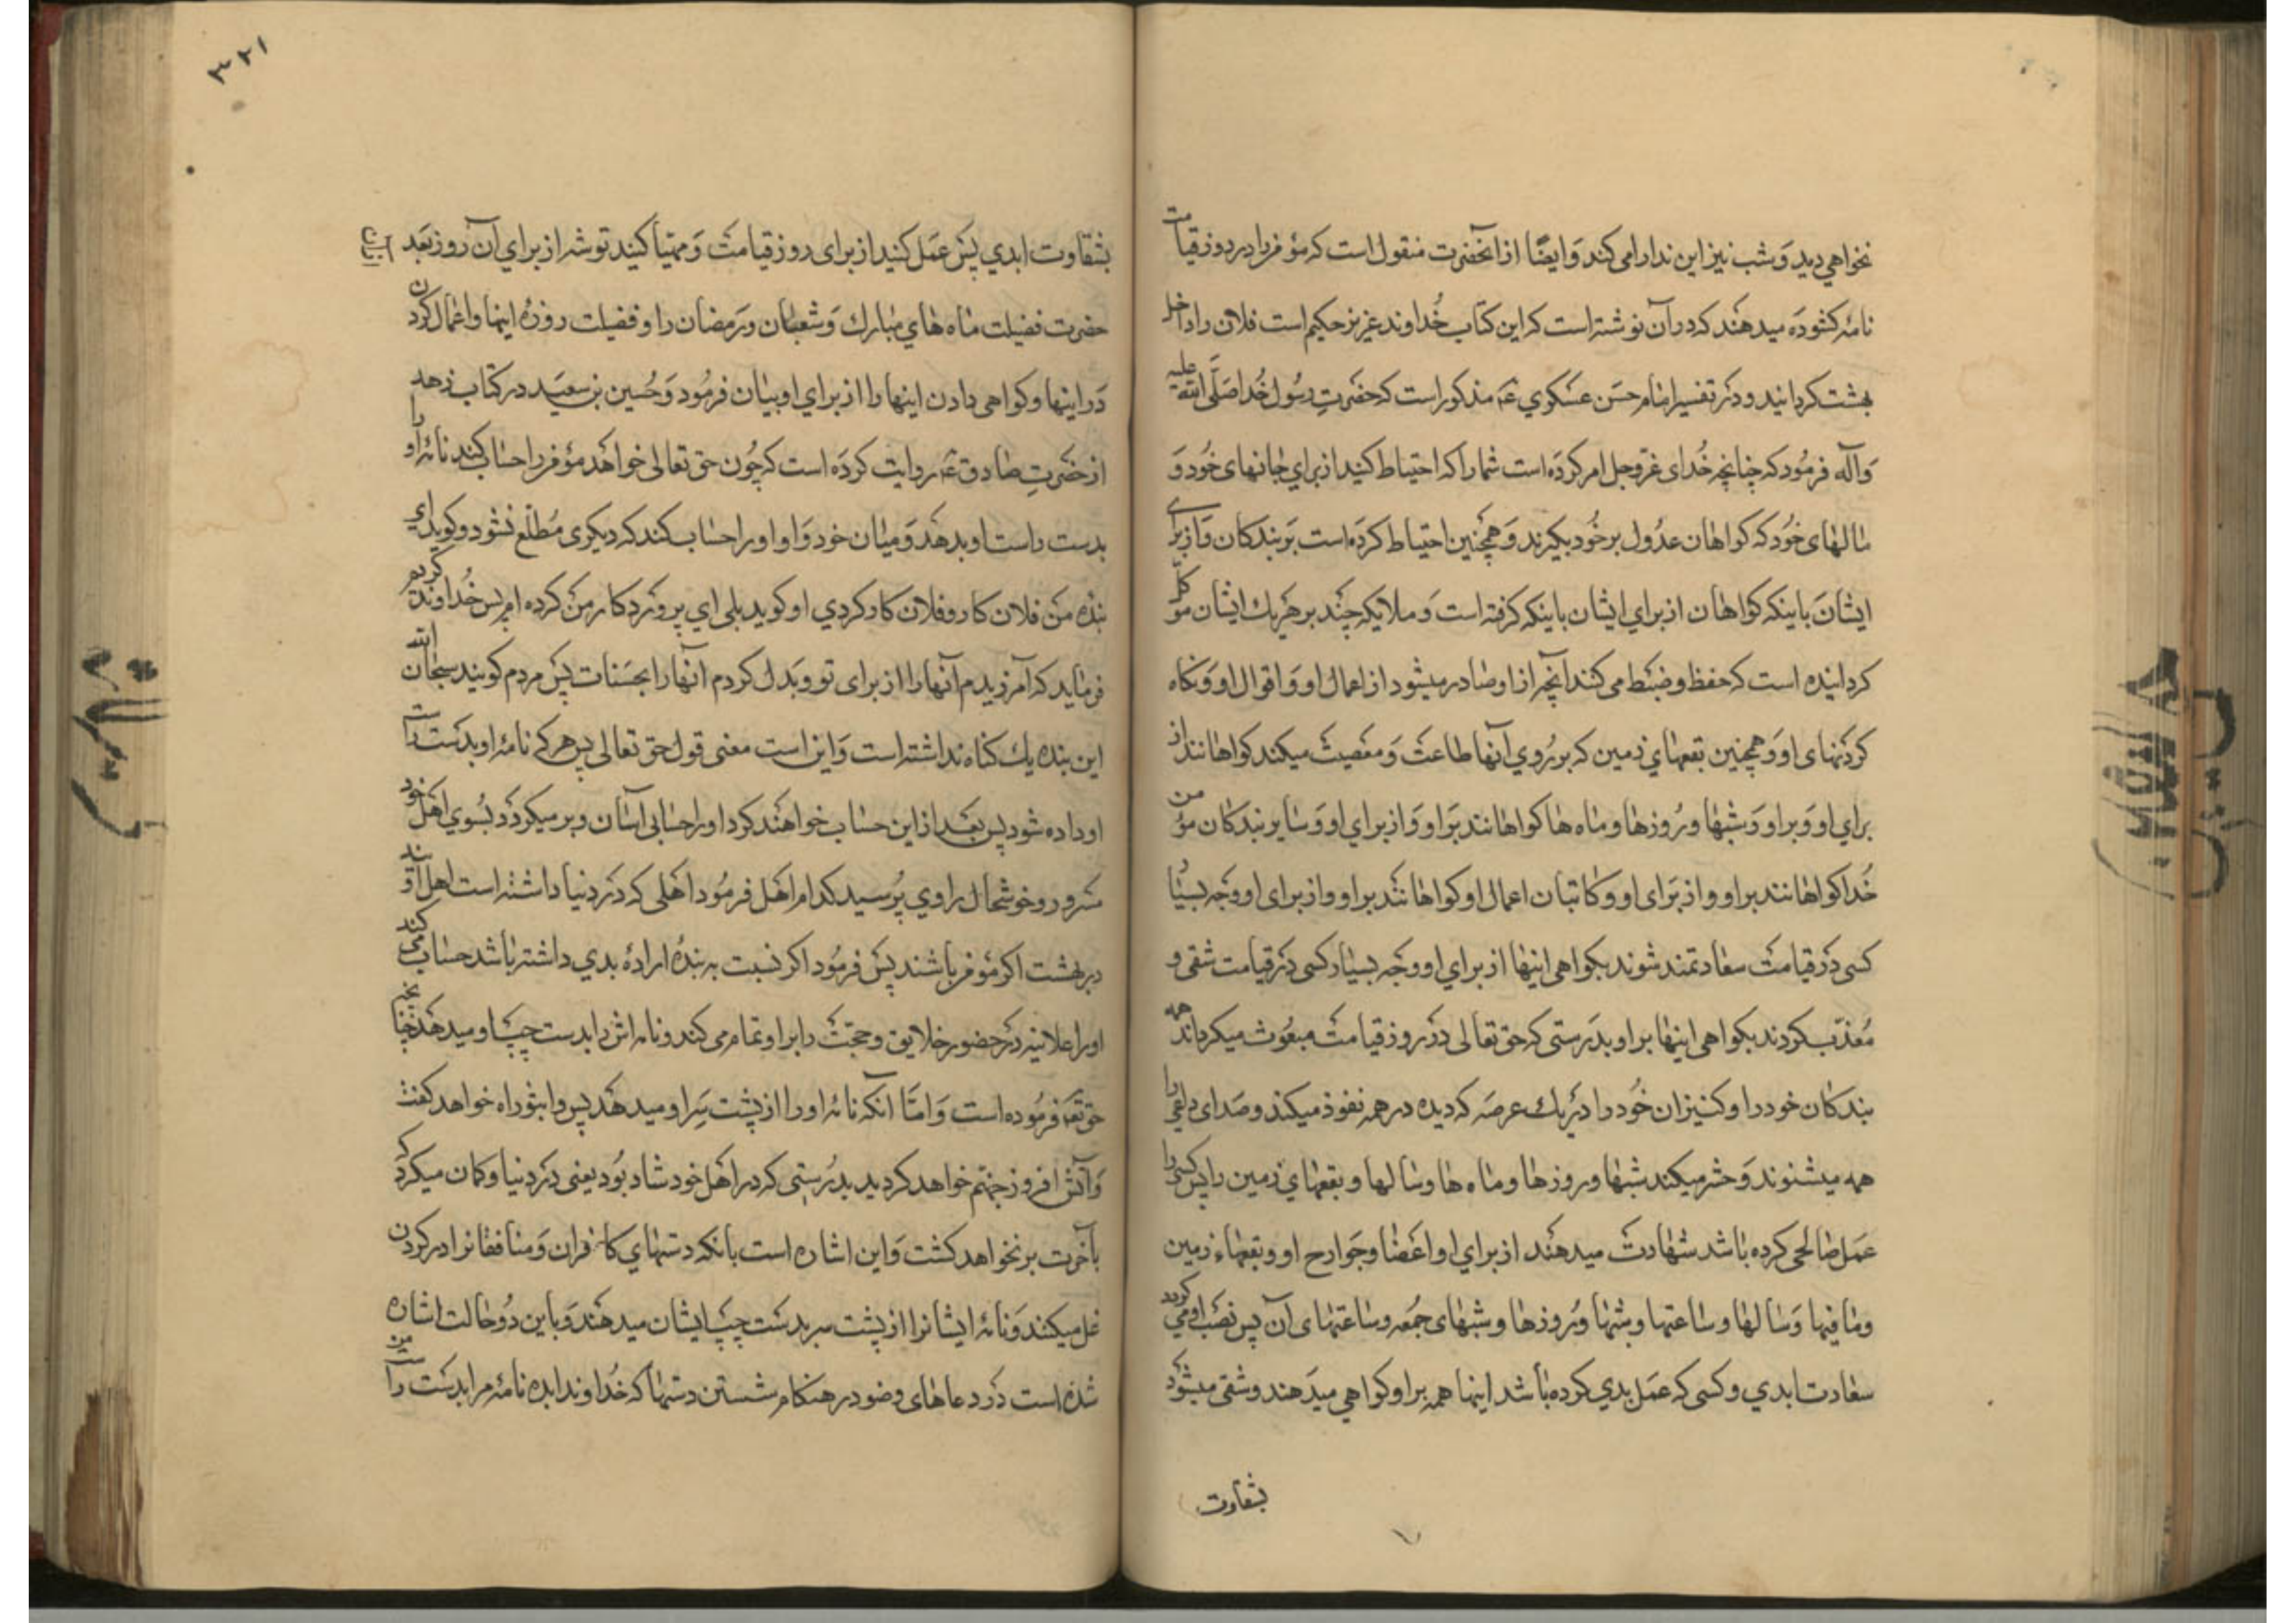 نخواهي ديد وشب نيز اين ندا را مى كند وايضًا از آنحضرت منقول است كه مؤمن را در روز قيامت
نامۀ كشوده ميدهند كه در آن نوشته است كه اين كتاب خُداوند عزيز حكيم است فلان را داخل
بهشت كردانيد ودر تفسير امام حسَن عسكري عَ مذكور است كه حضرتِ رسُول خُدا صَلَّى الله عليه
وآله فرمُود كه چنانچه خُداى عزوجل امر كردَه است شما را كه احتياط كنيد از براي جانهاى خُود وَ
مالهاى خُود كه كواهان عدُول بر خُود بكيرند وَهمچنين احتياط كردَه است بَر بندكان وَاز براے
ايشان باينكه كواهان از براي ايشان باينكه كرفته است وَملايكه چند بر هَر يك ايشان موكّل
كردانيده است كه حفظ وضبط مى كند آنچه از او صادر ميشود از اعمال او وَاقوال او وَنكاه
كردنهاى او وَهمچنين بقعهاي زمين كه بر رُوي آنها طاعت وَمعصيت ميكند كواهانند از
براي او وَبر او وَشبها ورُوزها وماه ها كواهانند بَر او وَاز براي او وَساير بندكان مؤمن
خُدا كواهانند بر او واز بَراى او وكاتبان اعمال او كواهانند بر او واز براى او وچه بسيار
كسى دَر قيامت سعادتمند شوند بكواهى اينها از براي او وچه بسيار كسى دَر قيامت شقى و
مُعذّب كردند بكواهى اينها بر او بدَرستى كه حق تعالى در روز قيامت مبعُوث ميكرداند همه
بندكان خود را وكنيزان خُود را در يك عرصَه كه ديده در همه نفوذ ميكند وصَداى داعى را
همه ميشنوند وَحشر ميكند شبها وروزها وماه ها وسالها وبقعهاي زمين را پس كسى را
عمَل صالحى كرده باشد شهادت ميدهند از براي او اعضا وجوارح او وبقعهاء زمين
ومافيها وَسالها وساعتها وشبها ورُوزها وشبهاى جُمعه وساعتهاى آن پس نصَب او مي كردد
سعادت ابدي وكسى كه عمَل بدي كرده باشد اينها همه بر او كواهي ميدَهند وشقى ميشود
بشقاوت
٣٢١
بشقاوت ابدي پس عمَل كنيد از براى روز قيامت وَمهيّا كنيد توشه از براي آن روز بعَد از آن
حضرت فضيلت ماه هاي مبارك وَشعبان ورَمضان را وفضيلت روزۀ اينها واعمال كردن
دَر اينها وكواهى دادن اينها را از براي او بيان فرمُود وَحُسين بن سعيَد در كتاب زهد
از حضرتِ صادق عَ روايت كردَه است كه چُون حق تعالى خواهد مؤمن را حساب كند نامۀ او را
بدست راست او بدهد وَميان خود وَاو او را حساب كند كه ديكرى مُطلّع نشود وكويد اي
بندۀ من فلان كار وفلان كار كردي او كويد بلى اي پروَردكار من كرده ام پس خُداوند كريم
فرمايد كه آمرزيدم آنها را از براى تو وبَدل كردم آنها را بحسَنات پس مردم كويند سبحان الله
اين بنده يك كناه نداشته است وَاين است معنى قول حق تعالى پس هر كه نامۀ او بدست راست
او داده شود پس بعَد از اين حساب خواهند كرد او را حسابى آسان وبر ميكردَد بسُوي اهَل خود
مسَرور وخوشحال راوي پرُسيد كدام اهَل فرمُود اهَلى كه دَر دنيا داشته است اهل اويند
در بهشت اكر مؤمن باشند پس فرمُود اكر نسبت به بندۀ ارادۀ بدي داشته باشد حساب مي كند
او را علانيه دَر حضور خلايق وحجّت را بر او تمام مى كند ونامه اش را بدست چپ او ميدهد چنانچه
حق تعَ فرمُوده است وَامّا آنكه نامۀ او را از پشت سَر او ميدهد پس واثبوراه خواهد كفت
وَآتش افروز جهنم خواهد كرديد بدرُستى كه در اهَل خود شاد بُود يعنى دَر دنيا وكمان ميكرد كه
بآخرت بر نخواهد كشت وَاين اشاره است بانكه دستهاي كافران وَمنافقانرا در كردن
غل ميكنند وَنامۀ ايشانرا از پشت سر بدست چپ ايشان ميدهند وَباين دُو حالت اشاره
شده است دَر دعاهاى وضو در هنكام شستن دستها كه خُداوندا بده نامۀ مرا بدست راست من